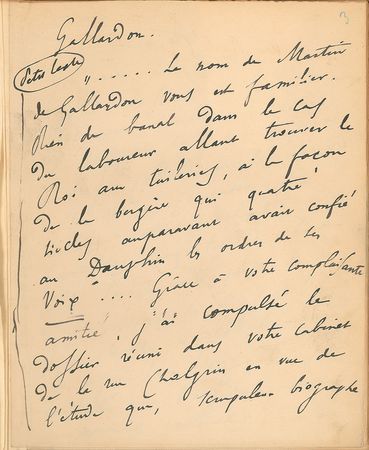 3
Gallardon.
Petit texte
"..... Le nom de Martin
de Gallardon vous est familier.
Rien de banal dans le cas
du laboureur allant trouver le
Roi aux tuileries, à la façon
de la bergère qui quatre
siècles auparavant avait confié
au Dauphin les ordres de ses
Voix" .... Grâce à votre complaisante
amitié, j'ai compulsé le
dossier réuni dans votre cabinet
de la rue Chalgrin en vue de
l'étude que, scrupuleux biographe